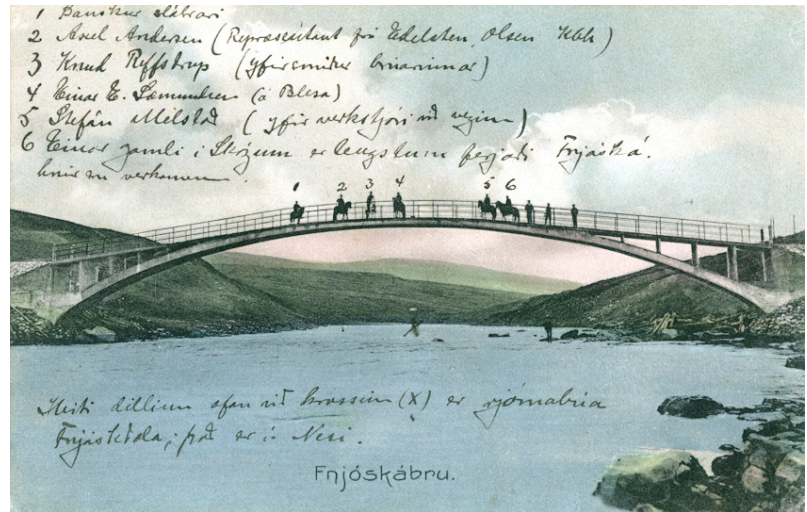 1 Danskur slátrari
2 Axel Andersen (Repræsentant frá Edelsten, Olsen Kbh)
3 Knud Ryffstrup (yfirsmiður brúarinnar)
4 Einar E. Sæmundsen (á Blesa)
5 Stefán Melstað (yfir verkstjóri við veginn)
6 Einar gamli í Skógum er lengstum ferjaði Fnjóská.
hinir eru verkamenn.
1 2 3 4 5 6
Hvíti díllinn ofan við krossinn (X) er rjómabúa
Fnjóskdæla, það er í Nesi.
Fnjóskábru.